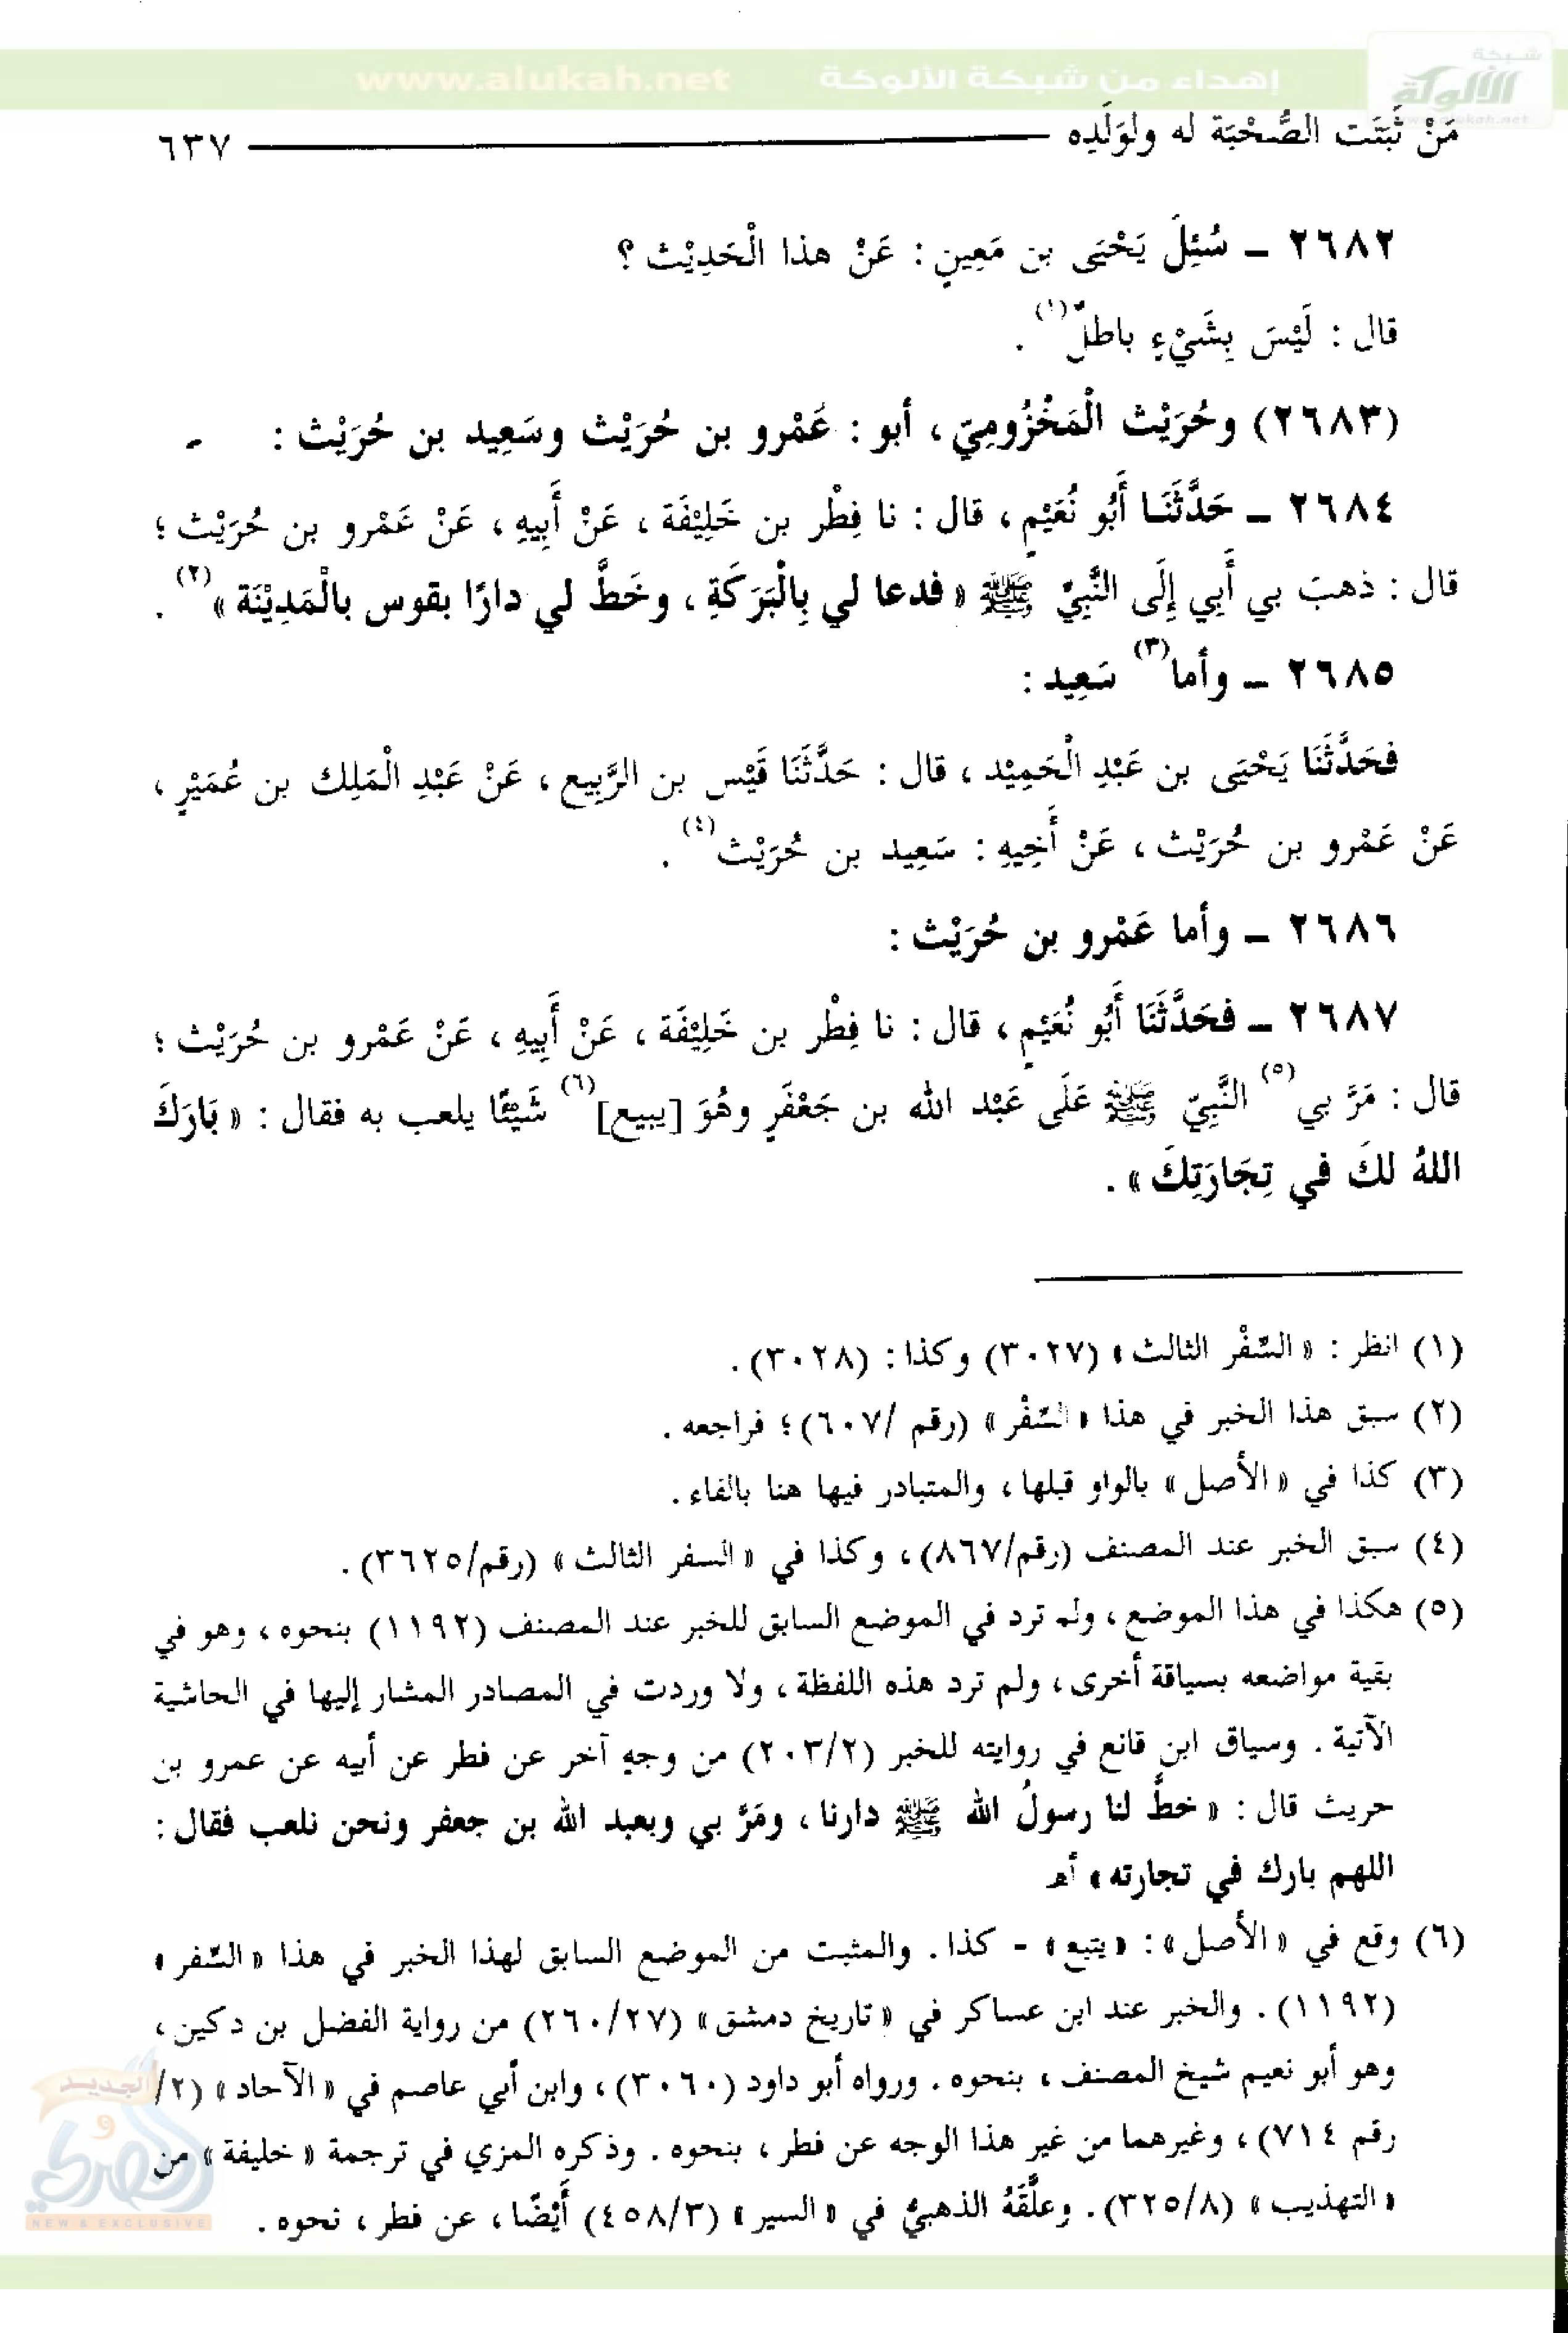 www.alukah.net إهداء من شبكة الألوكة
شبكة
الألوكة
www.alukah.net
مَنْ ثَبَتَت الصُّحْبَة له ولوَلَدِه ٦٣٧
٢٦٨٢ - سُئِلَ يَحْيَى بن مَعِينٍ : عَنْ هذا الْحَدِيْث ؟
قال : لَيْسَ بِشَيْءٍ باطلٌ(١) .
(٢٦٨٣) وحُرَيْث الْمَخْزُومِيّ ، أبو : عَمْرو بن حُرَيْث وسَعِيد بن حُرَيْث : -
٢٦٨٤ - حَدَّثَنَا أَبُو نُعَيْمٍ ، قال : نا فِطْر بن خَلِيْفَة ، عَنْ أَبِيهِ ، عَنْ عَمْرو بن حُرَيْث ؛
قال : ذهبَ بي أَبِي إِلَى النَّبِيِّ ﷺ « فدعا لي بِالْبَرَكَةِ ، وخَطَّ لي دارًا بقوس بالْمَدِيْنَة »(٢) .
٢٦٨٥ - وأما(٣) سَعِيد :
فحَدَّثَنَا يَحْيَى بن عَبْدِ الْحَمِيْد ، قال : حَدَّثَنَا قَيْس بن الرَّبِيع ، عَنْ عَبْدِ الْمَلِك بن عُمَيْرٍ ،
عَنْ عَمْرو بن حُرَيْث ، عَنْ أَخِيهِ : سَعِيد بن حُرَيْث(٤) .
٢٦٨٦ - وأما عَمْرو بن حُرَيْث :
٢٦٨٧ - فحَدَّثَنَا أَبُو نُعَيْمٍ ، قال : نا فِطْر بن خَلِيْفَة ، عَنْ أَبِيهِ ، عَنْ عَمْرو بن حُرَيْث ؛
قال : مَرَّ بي(٥) النَّبِيّ ﷺ عَلَى عَبْد الله بن جَعْفَرٍ وهُوَ [يبيع](٦) شَيْئًا يلعب به فقال : « بَارَكَ
اللهُ لكَ في تِجَارَتِكَ » .
(١) انظر : « السِّفْر الثالث » (٣٠٢٧) وكذا : (٣٠٢٨) .
(٢) سبق هذا الخبر في هذا « السِّفْر » (رقم /٦٠٧) ؛ فراجعه .
(٣) كذا في « الأصل » بالواو قبلها ، والمتبادر فيها هنا بالفاء .
(٤) سبق الخبر عند المصنف (رقم/٨٦٧) ، وكذا في « السفر الثالث » (رقم/٣٦٢٥) .
(٥) هكذا في هذا الموضع ، ولم ترد في الموضع السابق للخبر عند المصنف (١١٩٢) بنحوه ، وهو في
بقية مواضعه بسياقة أخرى ، ولم ترد هذه اللفظة ، ولا وردت في المصادر المشار إليها في الحاشية
الآتية . وسياق ابن قانع في روايته للخبر (٢٠٣/٢) من وجهٍ آخر عن فطر عن أبيه عن عمرو بن
حريث قال : « خطَّ لنا رسولُ الله ﷺ دارنا ، ومَرَّ بي وبعبد الله بن جعفر ونحن نلعب فقال :
اللهم بارك في تجارته » أه
(٦) وقع في « الأصل » : « يتبع » - كذا . والمثبت من الموضع السابق لهذا الخبر في هذا « السِّفر »
(١١٩٢) . والخبر عند ابن عساكر في « تاريخ دمشق » (٢٦٠/٢٧) من رواية الفضل بن دكين ،
وهو أبو نعيم شيخ المصنف ، بنحوه . ورواه أبو داود (٣٠٦٠) ، وابن أبي عاصم في « الآحاد » (٢/
رقم ٧١٤) ، وغيرهما من غير هذا الوجه عن فطر ، بنحوه . وذكره المزي في ترجمة « خليفة » من
« التهذيب » (٣٢٥/٨) . وعلَّقَهُ الذهبيُّ في « السير » (٤٥٨/٣) أَيْضًا ، عن فطر ، نحوه .
الجديد
و
الحصري
NEW & EXCLUSIVE